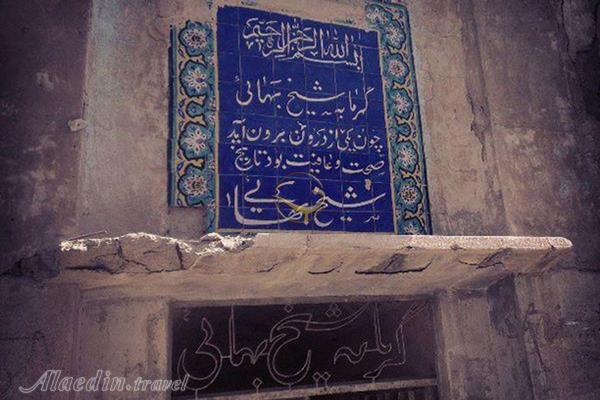 بسم الله الرحمن الرحیم
گرمابه شیخ بهائی
چون یکی از درون برون آید
صحت و عافیت بود تاریخ
شیخ بهایی
گرمابه شیخ بهائی
Alaedin.travel